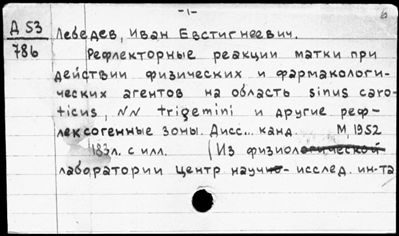 -1-
6
Д 53
786
Лебедев, Иван Евстигнеевич.
Рефлекторные реакции матки при
действии физических и фармакологи-
ческих агентов на область sinus caro-
ticus, NN trigemini и другие реф-
лексогенные зоны. Дисс... канд. М, 1952
183л. с илл. (Из физиологической
лаборатории Центр научно- исслед. ин-та